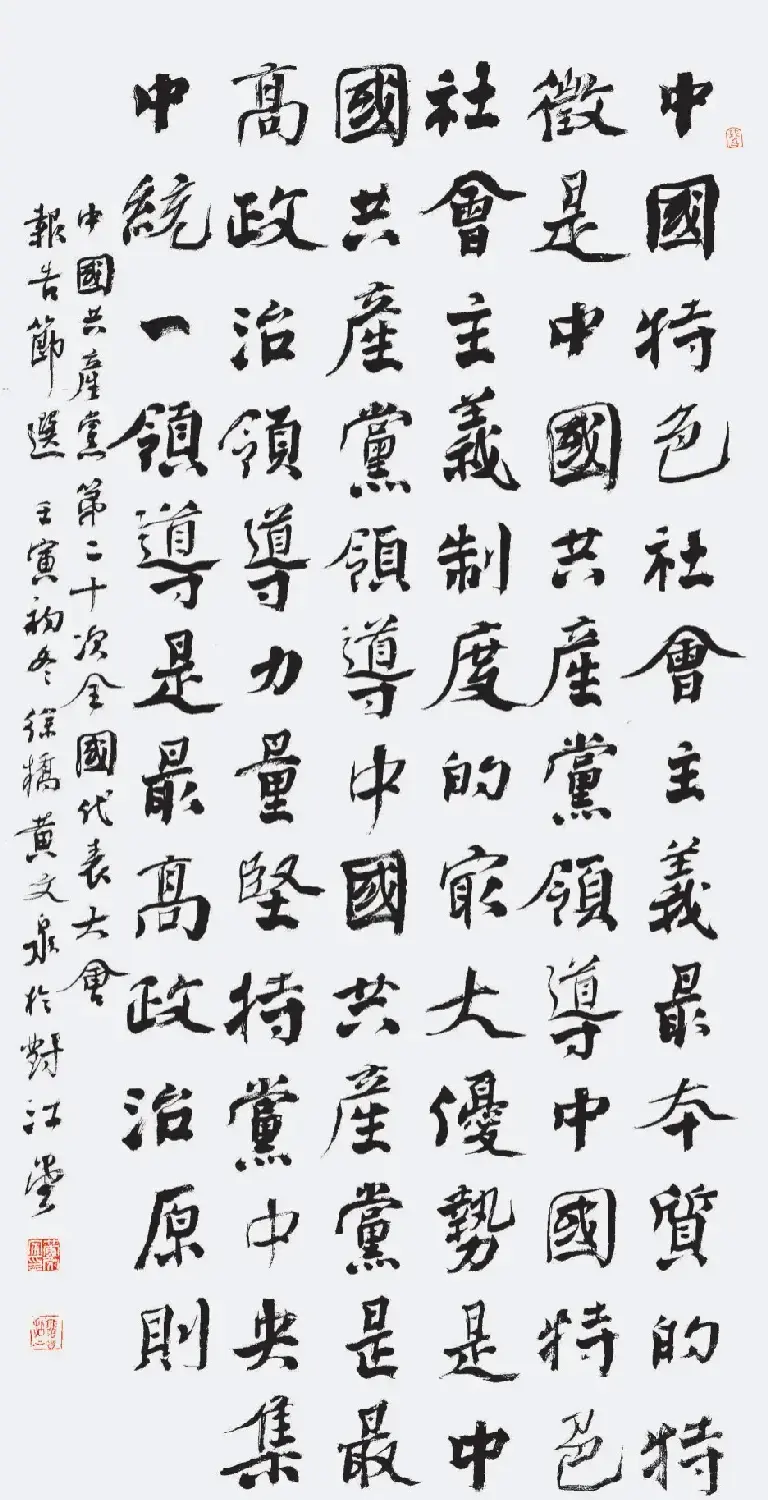 中國特色社會主義最本質的特
徵是中國共產黨領導中國特色
社會主義制度的最大優勢是中
國共產黨領導中國共產黨是最
高政治領導力量堅持黨中央集
中統一領導是最高政治原則
中國共產黨第二十次全國代表大會
報告節選 壬寅初冬徐橋黃文泉於對江堂